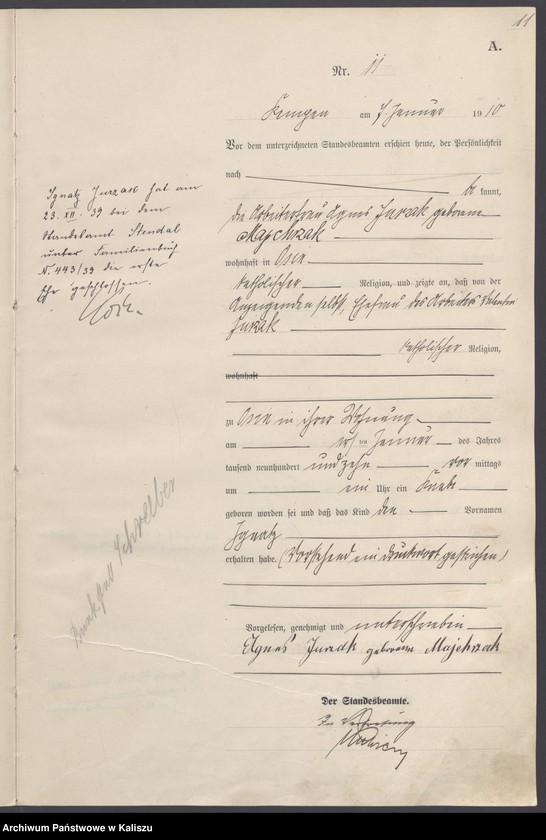 11
A.
Nr. 11
Kempen am 7. Januar 1910
Vor dem unterzeichneten Standesbeamten erschien heute, der Persönlichkeit
nach be kannt,
die Arbeiterfrau Agnes Jurzak geborene
Majchrzak
wohnhaft in Osin
katholischer Religion, und zeigte an, daß von der
Anzeigenden selbst, Ehefrau des Arbeiters Valentin
Jurzak
katholischer Religion,
wohnhaft
zu Osin in ihrer Wohnung
am ersten Januar des Jahres
tausend neunhundert und zehn vor mittags
um ein Uhr ein Knabe
geboren worden sei und daß das Kind den Vornamen
Ignatz
erhalten habe. (Vorstehend ein Druckwort gestrichen)
Vorgelesen, genehmigt und unterschrieben
Agnes Jurzak geborene Majchrzak
Der Standesbeamte.
In Vertretung
Ignatz Jurzak hat am
23. XII. 39 bei dem
Standesamt Stendal
unter Familienbuch
N. 443/39 die erste
Ehe geschlossen.
Schreiber
Archiwum Państwowe w Kaliszu